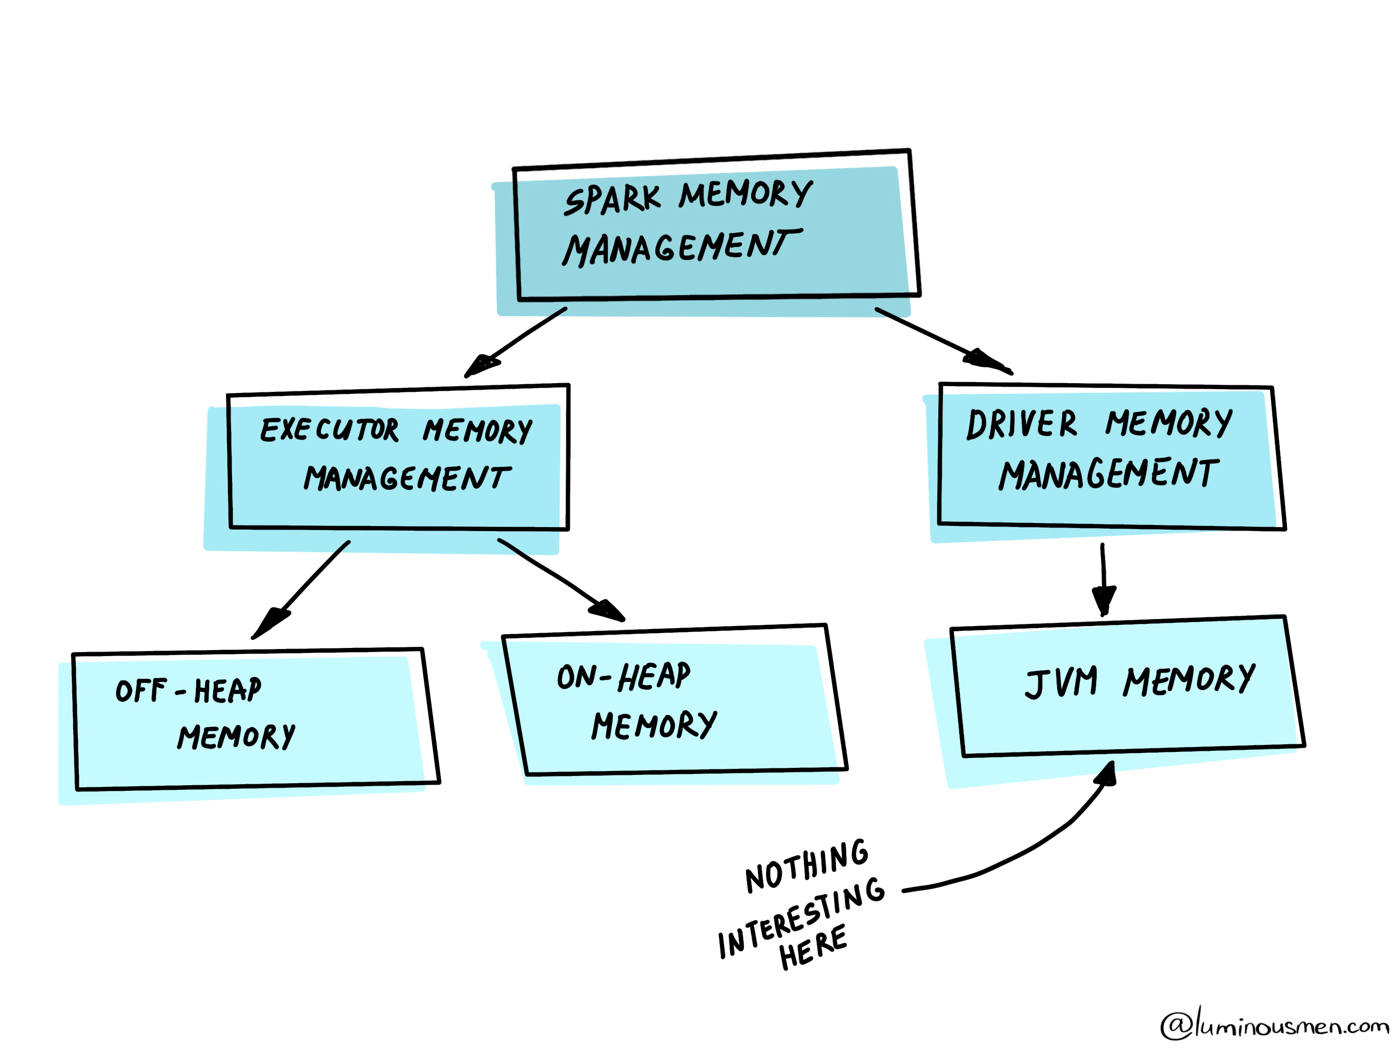 SPARK MEMORY
MANAGEMENT
EXECUTOR MEMORY
MANAGEMENT
DRIVER MEMORY
MANAGEMENT
OFF-HEAP
MEMORY
ON-HEAP
MEMORY
JVM MEMORY
NOTHING
INTERESTING
HERE
@luminousmen.com